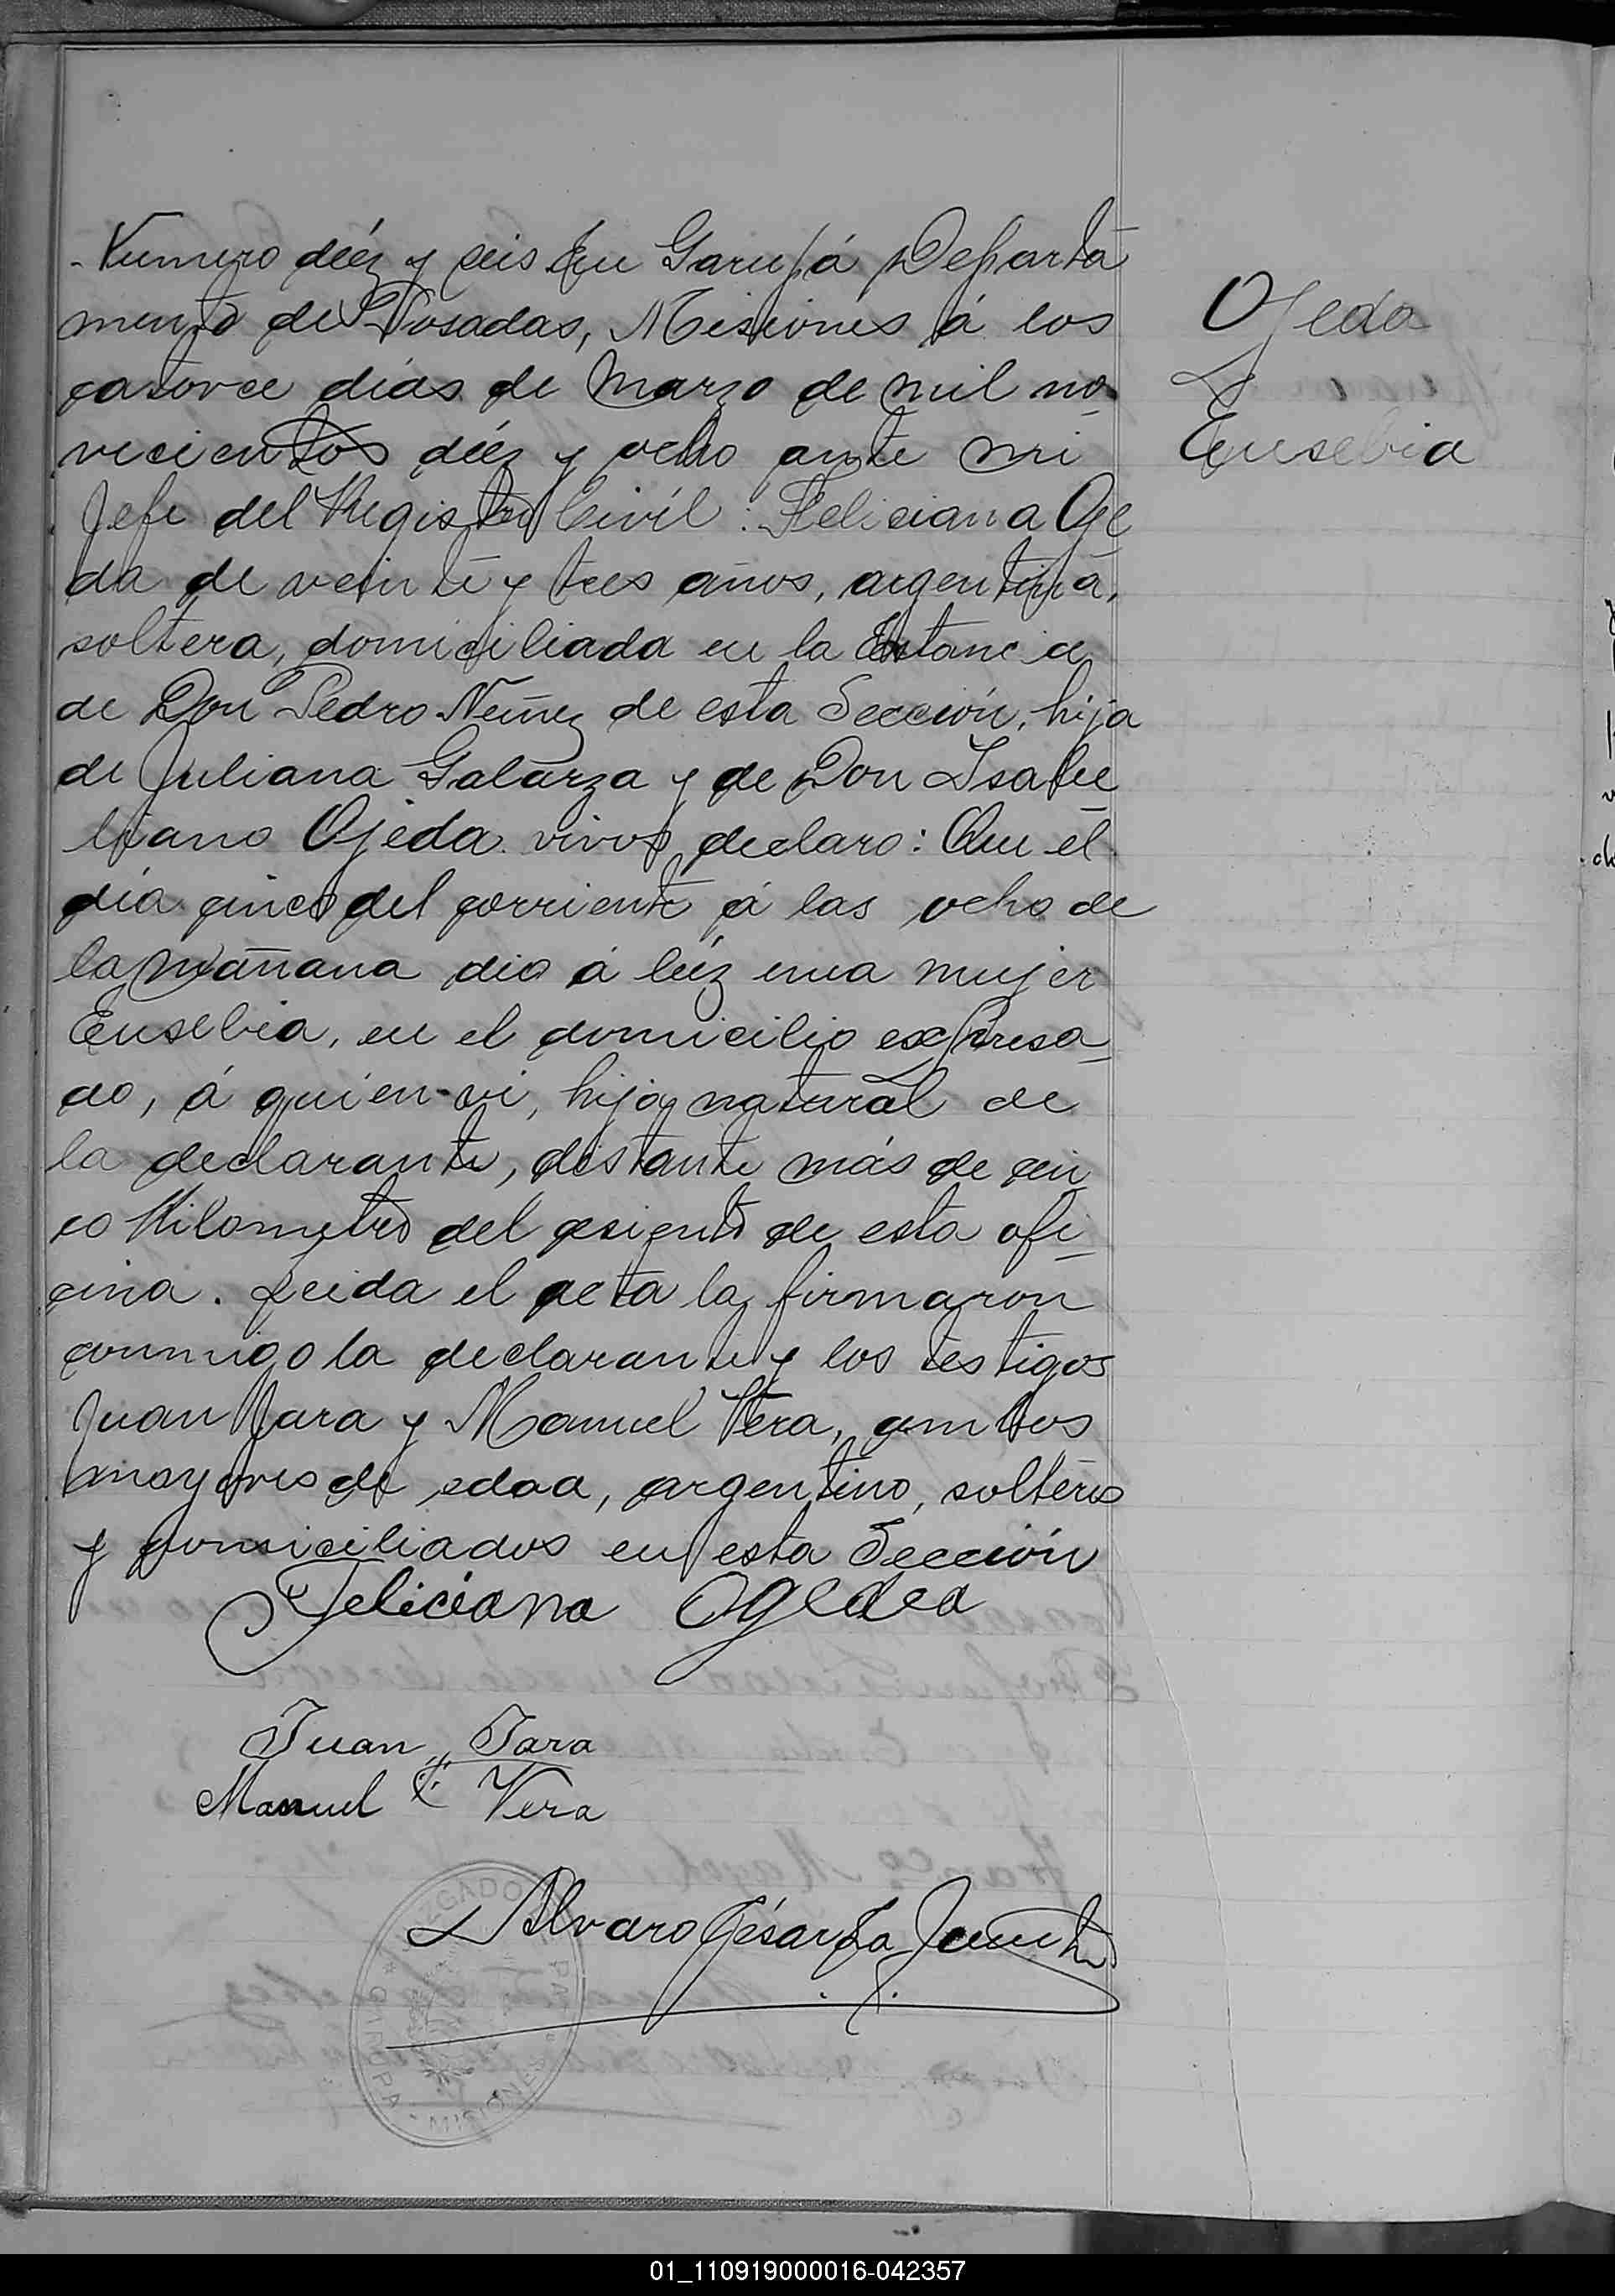 Numero diéz y seis En Garupá Departa
mento de Posadas, Misiones á los
catorce dias de Marzo de mil no-
vecientos diéz y ocho ante mi
Jefe del Registro Civíl: Feliciana Oje
da de veinte y tres años, argentina,
soltera, domiciliada en la Estancia
de Don Pedro Nuñez de esta Sección, hija
de Juliana Galarza y de Don Isabe
liano Ojeda vivos, declaro: Que el
día cinco del corriente á las ocho de
la mañana dio á lúz una mujer
Eusebia, en el domicilio expresa-
do, á quien vi, hija natural de
la declarante, distante más de cin
co Kilometros del asiento de esta ofi-
cina. Leida el acta la firmaron
conmigo la declarante y los testigos
Juan Jara y Manuel Vera, ambos
mayores de edad, argentino, solteros
y domiciliados en esta Sección
Feliciana Ogeda
Juan Jara
Manuel Vera
Alvaro César
GARUPA * MISIONES
Ojeda
Eusebia
01_110919000016-042357